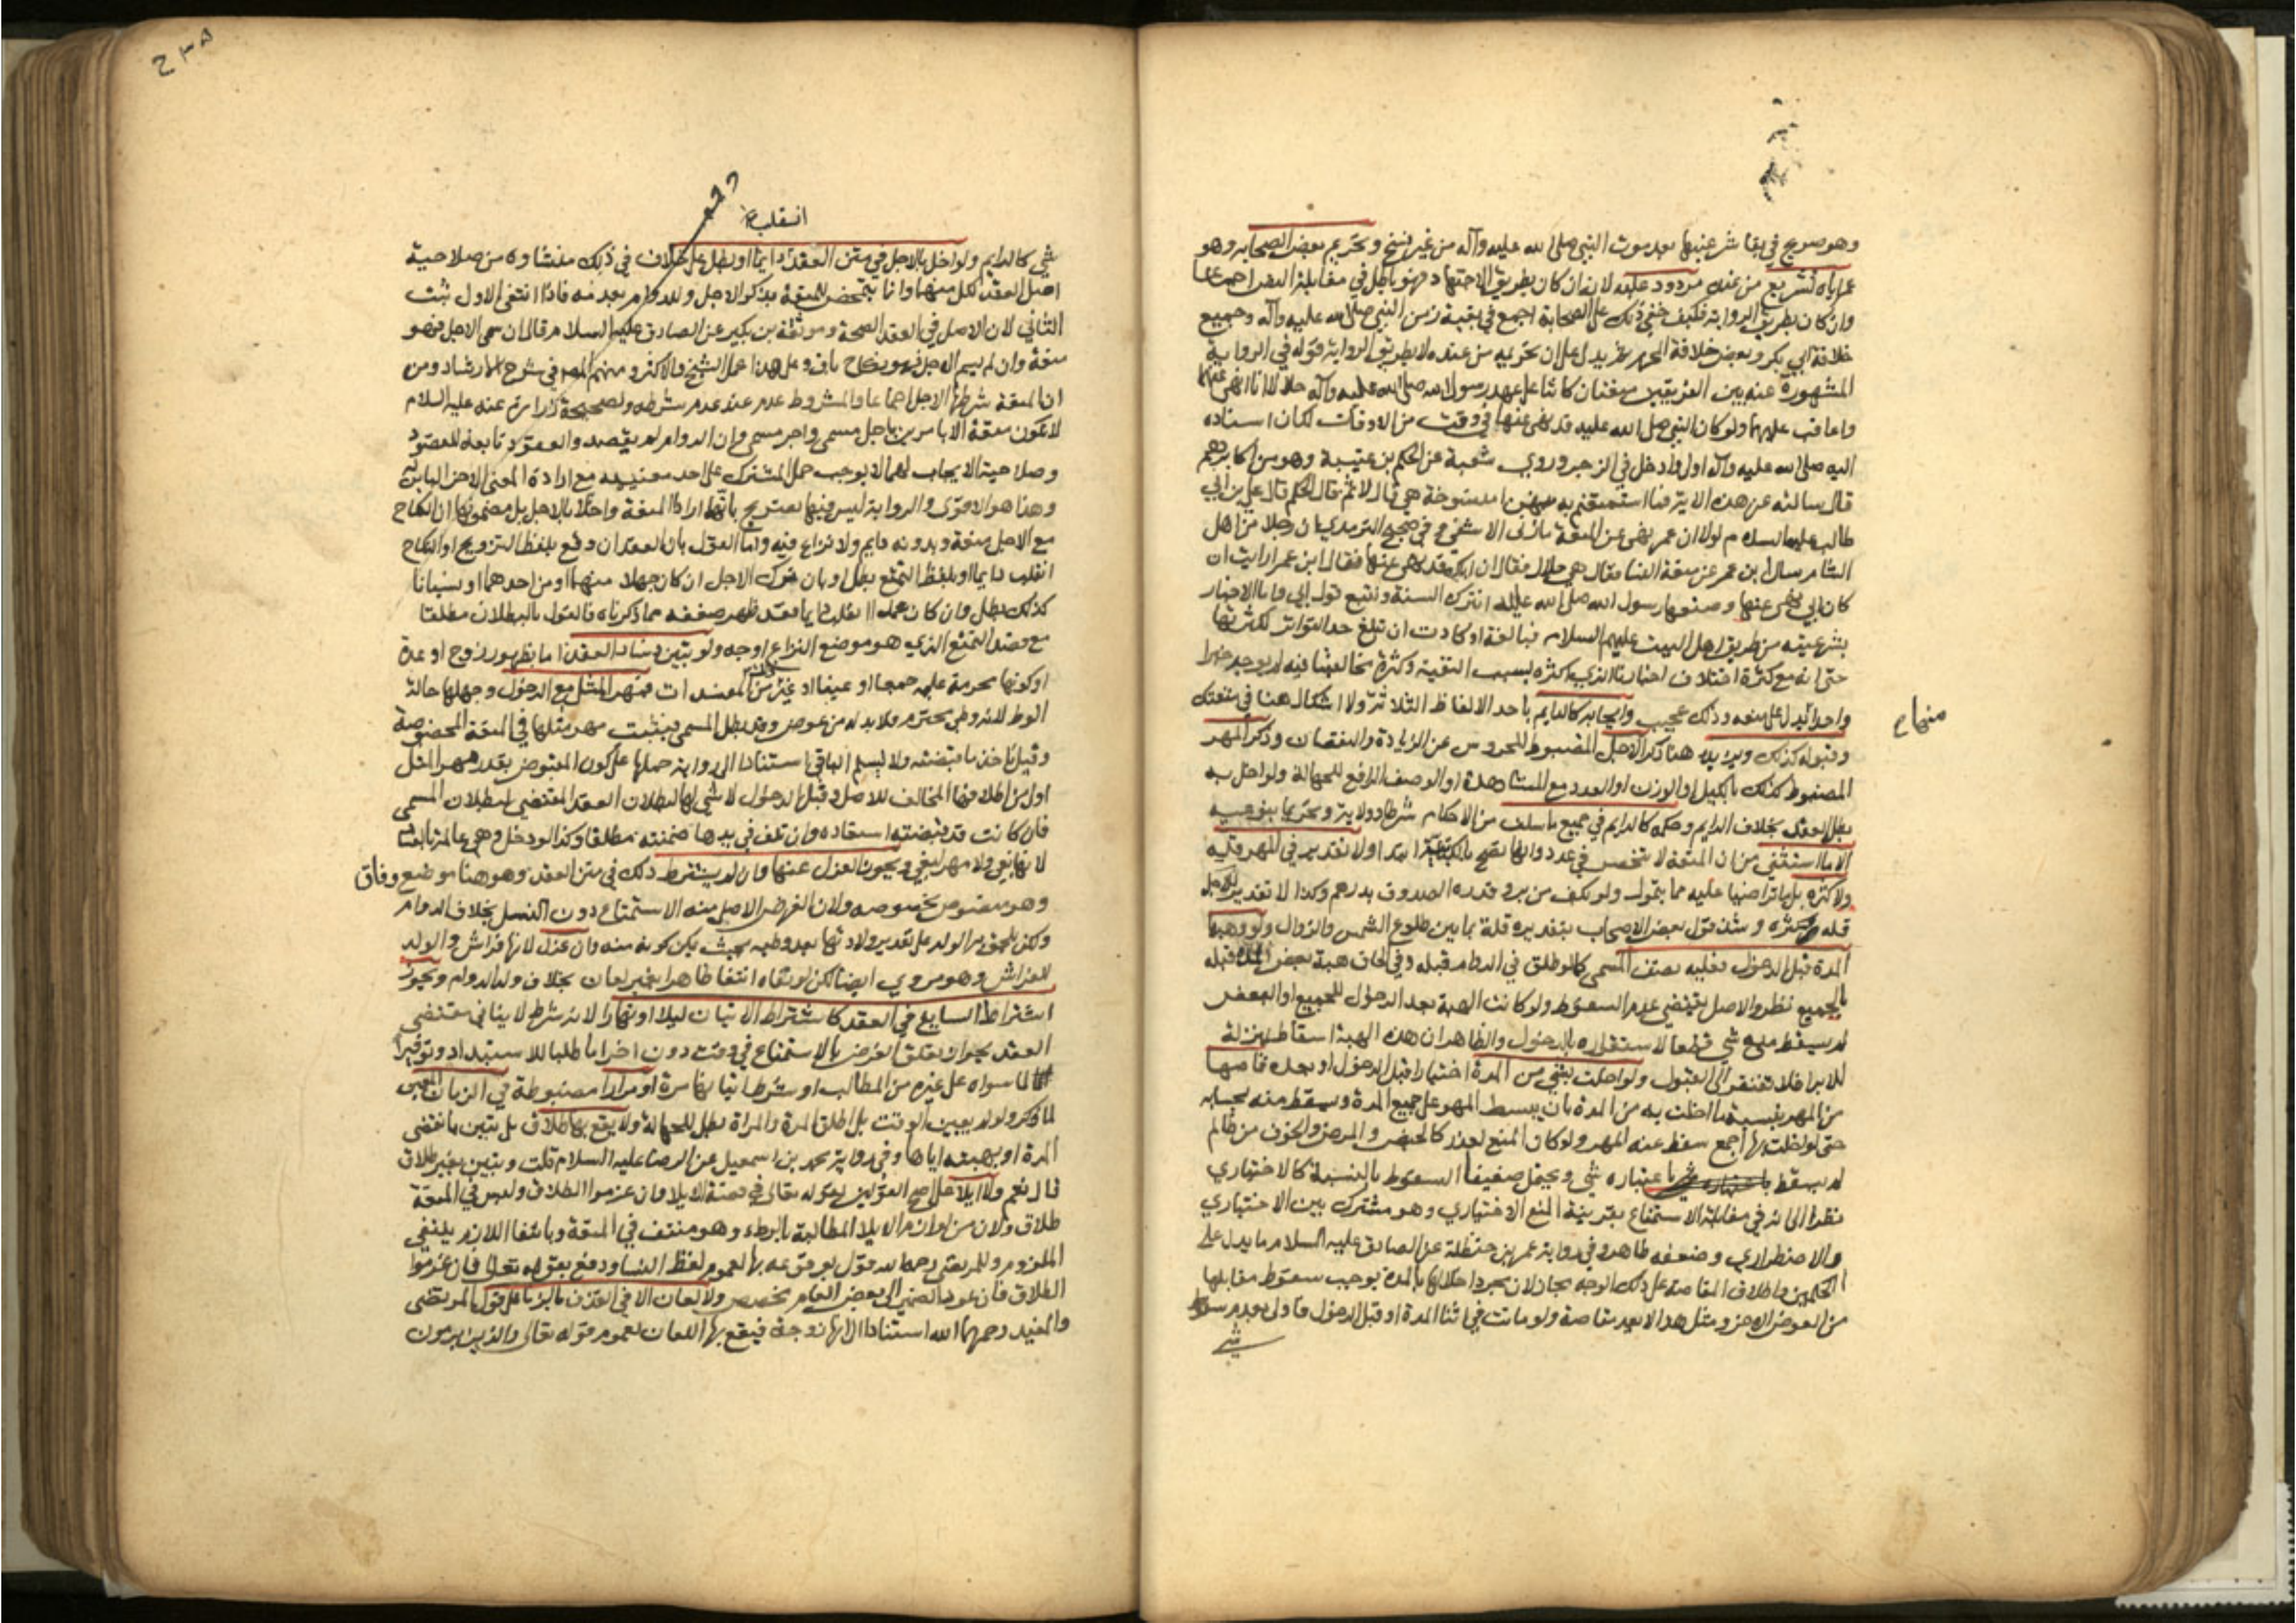 وهو صريح في بقاء شرعيتها بعد موت النبي صلى الله عليه وآله من غير نسخ وتحريم بعض الصحابة وهو
عمر اياه تشريع من عنده مردود عليه لانه ان كان بطريق الاجتهاد فهو باطل في مقابلة النص اجماعا
وان كان بطريق الرواية فكيف خفي ذلك على الصحابة اجمع في بقية زمن النبي صلى الله عليه وآله وجميع
خلافة ابي بكر وبعض خلافة المحرم ثم يدل على ان تحريمه من عنده لا بطريق الرواية قوله في الرواية
المشهورة عنه بين الفريقين متعتان كانتا على عهد رسول الله صلى الله عليه وآله حلالا انا انهى عنهما
واعاقب عليهما ولو كان النبي صلى الله عليه قد نهى عنها في وقت من الاوقات لكان اسناده
اليه صلى الله عليه وآله اولى وادخل في الزجر وروى شعبة عن الحكم بن عتيبة وهو من اكابرهم
قال سالته عن هذه الاية فما استمتعتم به منهن امنسوخة هي قال لا ثم قال الحكم قال علي بن ابي
طالب عليه السلام لولا ان عمر نهى عن المتعة ما زنى الا شقي وفي صحيح الترمذي ان رجلا من اهل
الشام سال ابن عمر عن متعة النسا فقال هي حلال فقال ان اباك قد نهى عنها فقال ابن عمر ارايت ان
كان ابي نهى عنها وصنعها رسول الله صلى الله عليه انترك السنة ونتبع قول ابي واما الاخبار
بشرعيته من طريق اهل البيت عليهم السلام فبالغة او كادت ان تبلغ حد التواتر لكثرتها
حتى انه مع كثرة اختلاف اخبارنا الذي اكثره بسبب التقية وكثرة مخالفينا فيه لم يوجد خبرا
واحدا يدل على منعه وذلك عجيب وايجابه كالدايم باحد الالفاظ الثلاثة ولا اشكال هنا في متعتك
منهاج
وقبوله كذلك ويزيد هنا ذكر الاجل المضبوط المحروس عن الزيادة والنقصان وذكر المهر
المضبوط كذلك بالكيل او الوزن او العدد مع المشاهدة او الوصف الرافع للجهالة ولو اخل به
بطل العقد بخلاف الدايم وحكمه كالدايم في جميع ما سلف من الاحكام شرطا وولاية وتحريما بنوعيه
الا ما استثني من ان المتعة لا تنحصر في عدد وانها تصح بالكتابية ابتدا ولا تقدير في المهر قلة
ولا كثرة بل ما تراضيا عليه مما يتمول ولو بكف من بر وقدره الصدوق بدرهم وكذا لا تقدير للاجل
قلة وكثرة وشذ قول بعض الاصحاب بتقديره قلة بما بين طلوع الشمس والزوال ولو وهبها
المدة قبل الدخول فعليه نصف المسمى كالو طلق في الدوام قبله وفي لحاق هبة بعض المدة قبله
بالجميع نظر والاصل يقتضي عدم السقوط ولو كانت الهبة بعد الدخول للجميع او البعض
لم يسقط منه شي قطعا لاستقراره بالدخول والظاهر ان هذه الهبة اسقاط بمنزلة
للابرا فلا تفتقر الى القبول ولو اخلت بشي من المدة اختيارا قبل الدخول او بعده قاصها
من المهر بنسبة ما اخلت به من المدة بان يبسط المهر على جميع المدة ويسقط منه بحسابه
حتى لو اخلت بها اجمع سقط عنه المهر ولو كان المنع لعذر كالحيض والمرض والخوف من ظالم
لم يسقط باعتباره شي ويحتمل ضعيفا السقوط بالنسبة كالاختياري
نظرا الى انه في مقابلة الاستمتاع بقرينة المنع الاختياري وهو مشترك بين الاختياري
والاضطراري وضعفه ظاهر وفي رواية عمر بن حنظلة عن الصادق عليه السلام ما يدل على
الحكمين واطلاق المقاصة على ذلك الوجه مجاز لان مجرد اخلالها بالمدة يوجب سقوط مقابلها
من العوض الاخر ومثل هذا لا يعد مقاصة ولو ماتت في اثنا المدة او قبل الدخول فاولى بعدم سقوط
شي
٢٣٥
انقلب
شي كالدايم ولو اخل بالاجل في متن العقد دايما او بطل على خلاف في ذلك منشاوه من صلاحية
اصل العقد لكل منهما وانما يتمحض للمتعة بذكر الاجل وللدوام بعدمه فاذا انتفى الاول ثبت
الثاني لان الاصل في العقد الصحة وموثقة بن بكير عن الصادق عليه السلام قال ان سمى الاجل فهو
متعة وان لم يسم الاجل فهو نكاح باق وعلى هذا عمل الشيخ والاكثر ومنهم المص في شرح الارشاد ومن
ان المتعة شرطها الاجل اجماعا والمشروط عدم عند عدم شرطه ولصحيحة زرارة عنه عليه السلام
لا تكون متعة الا بامرين باجل مسمى واجر مسمى وان الدوام لم يقصد والعقود تابعة للقصود
وصلاحية الايجاب لهما لا يوجب حمل المشترك على احد معنييه مع ارادة المعنى الاخر المباين له
وهذا هو الاقوى والرواية ليس فيها تصريح بانهما ارادا المتعة واخلا بالاجل بل مضمونها ان النكاح
مع الاجل متعة وبدونه دايم ولا نزاع فيه واما القول بان العقد ان وقع بلفظ التزويج او النكاح
انقلب دايما او بلفظ التمتع بطل او بان ترك الاجل ان كان جهلا منهما او من احدهما او نسيانا
كذلك بطل وان كان عمدا انقلب دايما فقد ظهر ضعفه مما ذكرناه فالقول بالبطلان مطلقا
مع قصد التمتع الذي هو موضع النزاع اوجه ولو تبين فساد العقد اما بظهور زوج او عدة
او كونها محرمة عليه جمعا او عينا او غير ذلك من المفسدات فمهر المثل مع الدخول وجهلها حالة
الوطء لانه وطي محترم فلا بد له من عوض وقد بطل المسمى فيثبت مهر مثلها في المتعة المخصوصة
وقيل تاخذ ما قبضته ولا يسلم الباقي استنادا الى رواية حملها على كون المقبوض بقدر مهر المثل
اولى من اطلاقها المخالف للاصل وقبل الدخول لا شي لها لبطلان العقد المقتضي لبطلان المسمى
فان كانت قد قبضته استعاده وان تلف في يدها ضمنته مطلقا وكذا لو دخل وهي عالمة بالفساد
لانها بغي ولا مهر لبغي ويجوز العزل عنها وان لم يشترط ذلك في متن العقد وهو هنا موضع وفاق
وهو منصوص بخصوصه ولان الغرض الاصلي منه الاستمتاع دون النسل بخلاف الدوام
ولكن يلحق به الولد على تقدير ولادتها بعد وطيه بحيث يمكن كونه منه وان عزل لانها فراش والولد
للفراش وهو مروي ايضا لكن لو نفاه انتفا ظاهرا بغير لعان بخلاف ولد الدوام ويجوز
اشتراط السايغ في العقد كاشتراط الاتيان ليلا او نهارا لانه شرط لا ينافي مقتضى
العقد لجواز تعلق الغرض بالاستمتاع في وقت دون اخر اما طلبا للاستبداد وتوفيرا
لما سواه على غيره من المطالب او شرط اتيانها مرة او مرارا مضبوطة في الزمان المعين
لما ذكر ولو لم يعين الوقت بل اطلق المرة والمراة بطل للجهالة ولا يقع بها طلاق بل تبين بانقضى
المدة او بهبته اياها وفي رواية محمد بن اسمعيل عن الرضا عليه السلام قلت وتبين بغير طلاق
قال نعم ولا ايلا على اصح القولين لقوله تعالى في قصة الايلا وان عزموا الطلاق وليس في المتعة
طلاق ولان من لوازم الايلا المطالبة بالوطء وهو منتف في المتعة وبانتفا اللازم ينتفي
الملزوم وللمرتضى رحمه الله قول بوقوعه بها لعموم لفظ النسا ودفع بقوله تعالى فان عزموا
الطلاق فان عود الضمير الى بعض العام يخصص ولا لعان الا في القذف بالزنا على قول المرتضى
والمفيد رحمهما الله استنادا الى انها زوجة فيقع بها اللعان لعموم قوله تعالى والذين يرمون